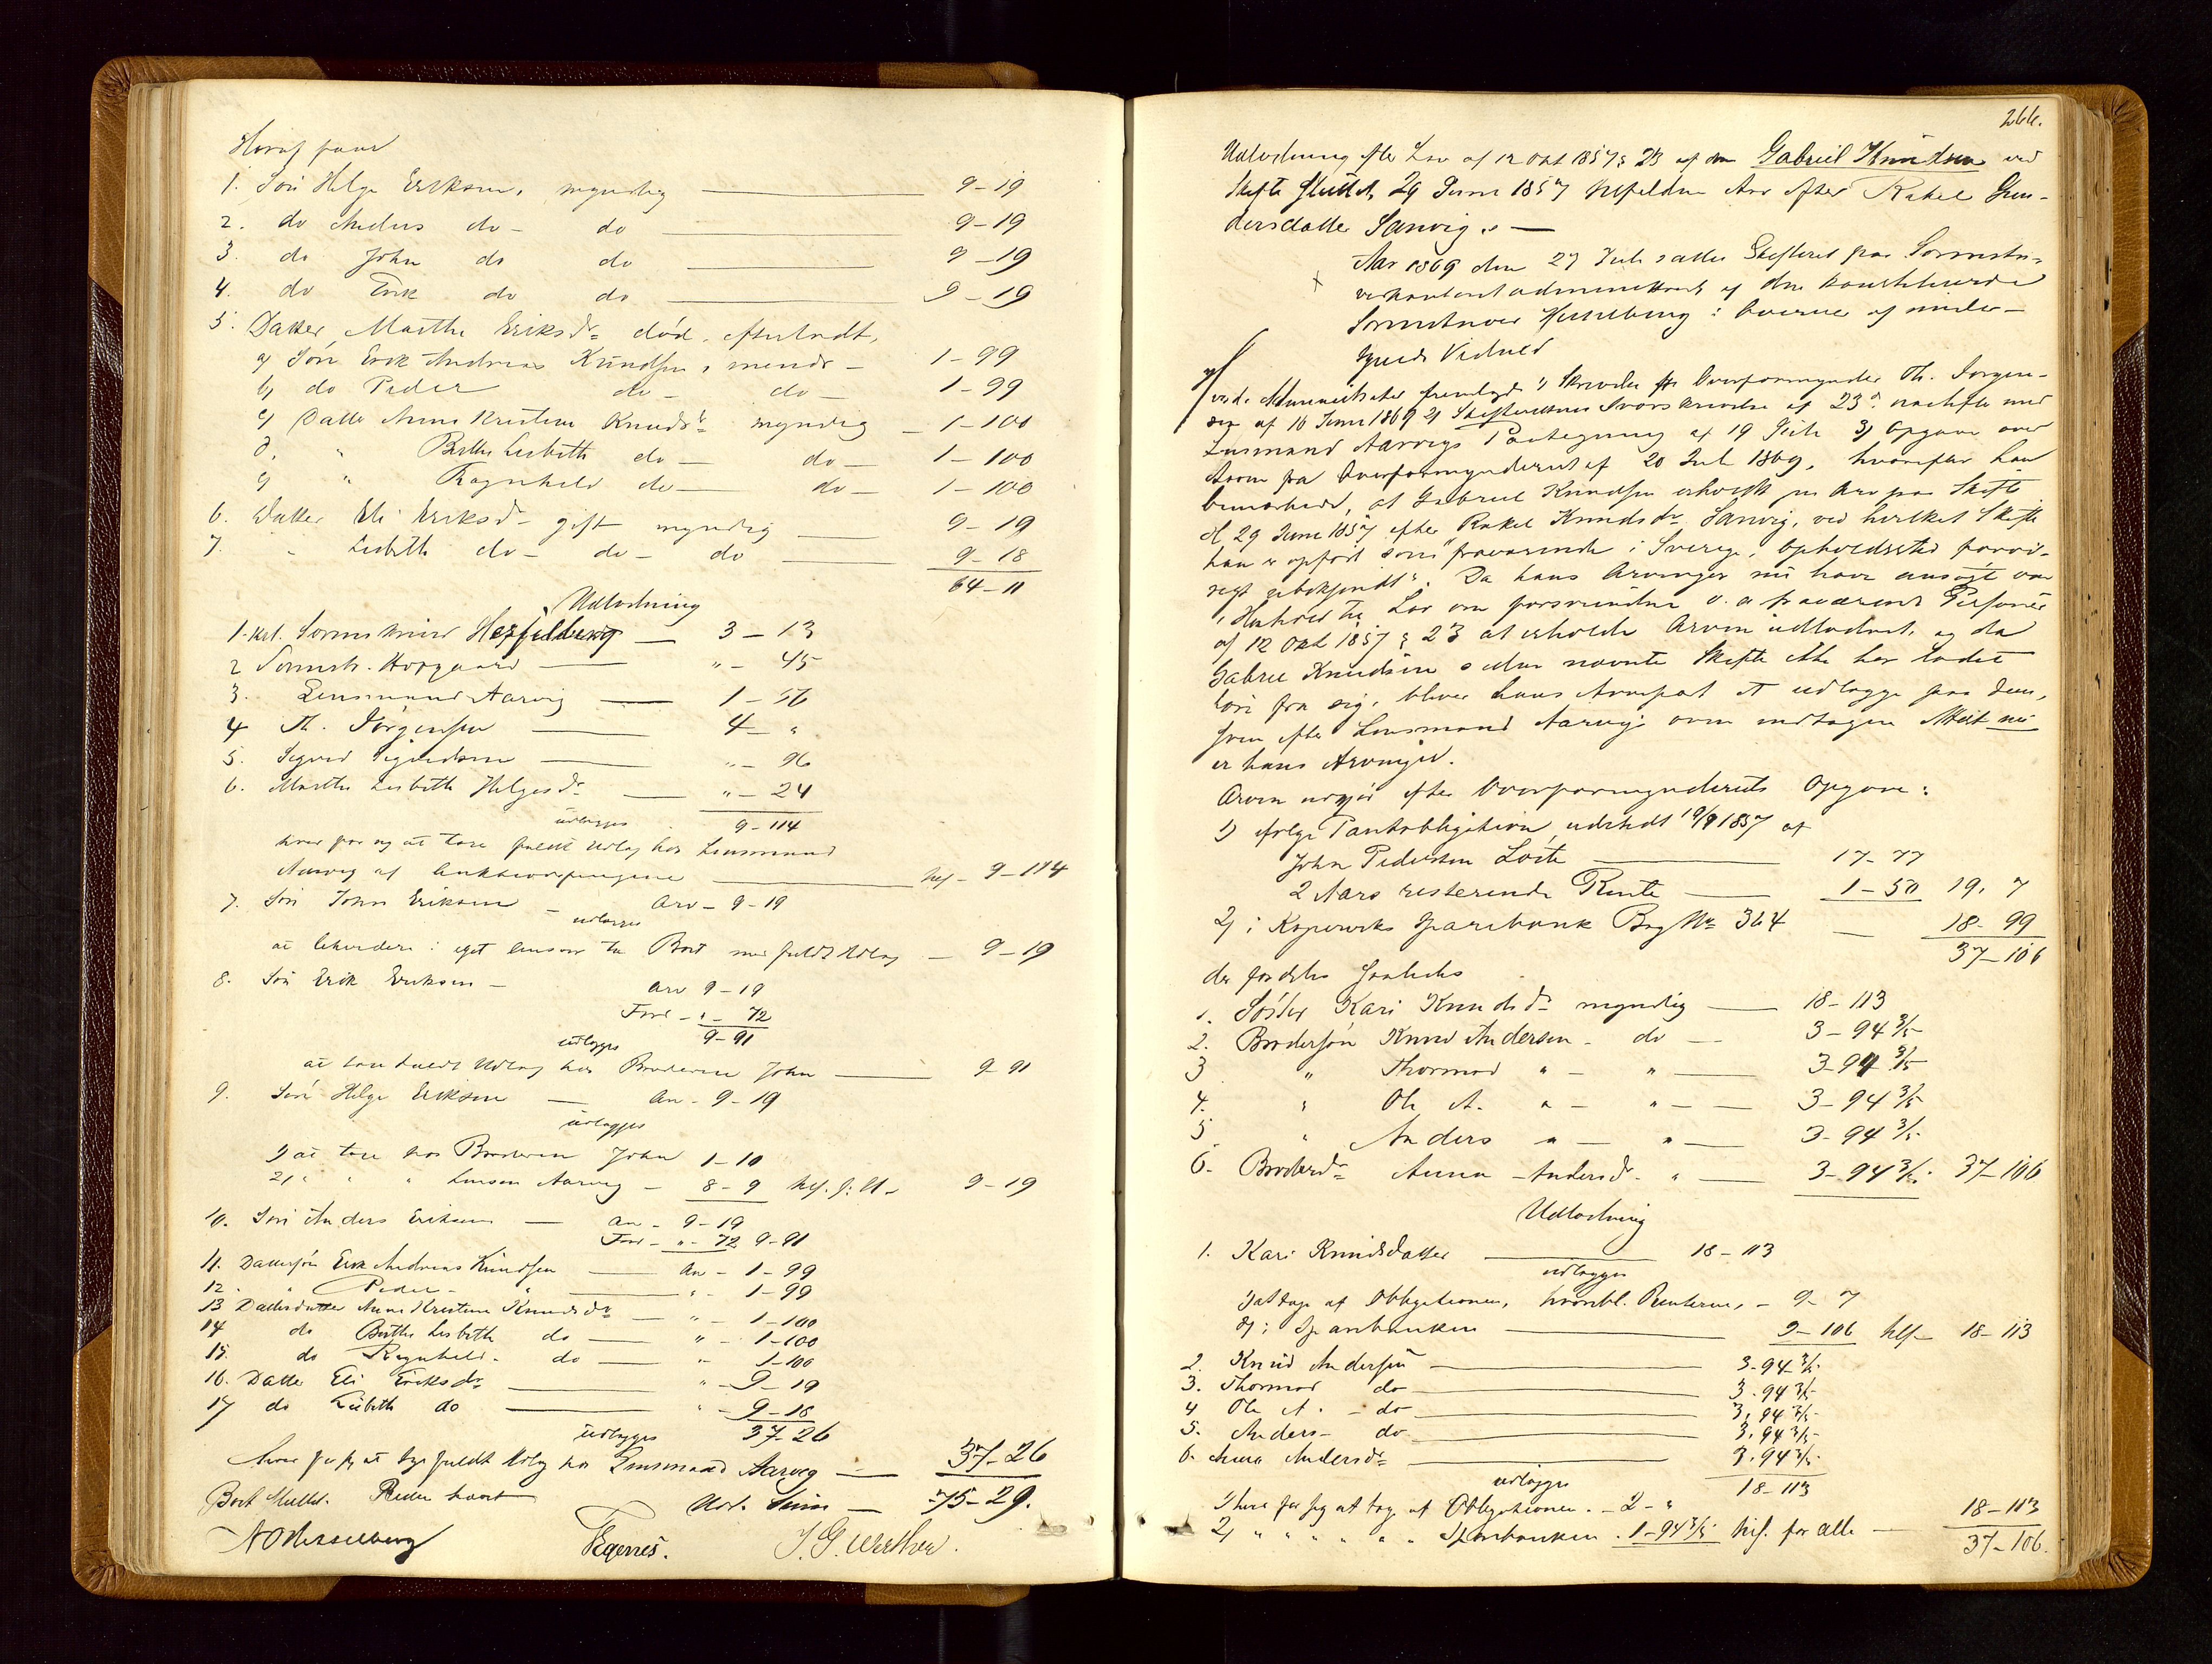 Heraf faaer
1. Søn Helge Eriksen, myndig — 9-19
2. do Anders do - do — 9-19
3. do John do do — 9-19
4. do Erik do do — 9-19
5. Datter Marthe Eriksdr død, efterladt,
a) Søn Erik Andreas Knudsen, — 1-99
b) do Peder do - do — 1-99
c) Datter Anna Kristine Knudsdr myndig — 1-100
d. " Berthe Lisbeth do — do — 1-100
e) " Ragnhild do — do — 1-100
6. Datter Eli Eriksdr gift myndig — 9-19
7. " Lisbeth do - do - do — 9-18
64-11
Udlodning
1. Sorenskriver — 3-13
2 Sorenskr. — " - 45
3. Lensmand Aarvig — 1-56
4 Th. Jørgensen — 4 - "
5. Sigvard Sigurdsen — " - 96
6. Marthe Lisbeth Helgesdr — " - 24
udlægges 9-114
hver for sig at tage fuldt Udlæg hos Lensmand
Aarvig af Auktionspengene — 9-114
7. Søn John Eriksen — Arv - 9-19
udlægges
at i eget ansvar til Boet med fuldt Udlæg — 9-19
8. Søn Erik Eriksen — Arv 9-19
Ford - " - 72
udlægges 9-91
at tage fuldt Udlæg hos Broderen John — 9-91
9. Søn Helge Eriksen — Arv - 9-19
udlægges
1) at tage hos Broderen John 1-10
2) " " " Lensm Aarvig — 8-9 9-19
10. Søn Anders Eriksen — Arv - 9-19
Ford - " - 72 9-91
11. Dattersøn Erik Andreas Knudsen — Arv - 1-99
12. " Peder - " — " - 1-99
13 Datterdatter Anna Kristine Knudsdr — " - 1-100
14 do Berthe Lisbeth do — " - 1-100
15. do Ragnhild - do — " - 1-100
16. Datter Eli Eriksdr — " - 9-19
17 do Lisbeth do — " - 9-18
udlægges 37-26
hver for sig at tage fuldt Udlæg hos Lensmand Aarvig — 37-26
Udl. Sum — 75-29.
Tegernes. J. G. Werther.
266.
Udlodning efter Lov af 12 Okt 1857 § 23 af den Gabriel Knudsen ved
Skifte sluttet 29 Juni 1857 tilfaldne Arv efter Rakel
Sanvig. —
Aar 1869 den 27 Juli sattes Skifteret paa Sorenskri-
verkontoret administreret af den konstituerede
Sorenskriver : Overvær af under-
Vidner
Administrator fremlagde 1) Skrivelse fra Overformynder Th. Jørgen-
sen af 16 Juni 1869 2) Skifterettens Svarskrivelse af 23d næstefter med
Lensmand Aarvigs Paategning af 19 Juli 3) Opgave over
Arven fra Overformynderiet af 20 Juli 1869, hvorefter han
bemærkede, at Gabriel Knudsen erholdt en Arv paa Skifte
d 29 Juni 1857 efter Rakel Knudsdr Sanvig, ved hvilket Skifte
han er opført som "fraværende i Sverige, Opholdssted forøv-
rigt ubekjendt". Da hans Arvinger nu have ansøgt om
i Henhold til Lov om forsvundne o. a fraværende Personer
af 12 Okt 1857 § 23 at erholde Arven udloddet, og da
Gabriel Knudsen siden nævnte Skifte ikke har ladet
høre fra sig, bliver hans Arvepart at udlægge paa dem,
som efter Lensmand Aarvigs oven indtagne Attest nu
er hans Arvinger.
Arven udgjør efter Overformynderiets Opgave:
1) ifølge Pantobligation udstedt 10/9 1857 af
John Pedersen — 17-77
2 Aars resterende Rente — 1-50 19, 7
2) i Kopervik Sparebank Bog No 364 — 18-99
37-106
der fordeles saaledes
1. Søster Kari Knudsdr myndig — 18-113
2. Brodersøn Knud Andersen - do — 3-94 3/5
3 " Thormod " - " — 3-94 3/5
4. " Ole A. " - " — 3-94 3/5
5 " Anders " — " — 3-94 3/5
6. Broderdr Anna Andersdr - " — 3-94 3/5. 37-106
Udlodning
1. Kari Knudsdatter — 18-113
udlægges
1) at tage af Obligationen, Renterne, - 9-7
2) i Sparebanken — 9-106 18-113
2. Knud Andersen — 3-94 3/5
3. Thormod do — 3-94 3/5
4 Ole A. - do — 3-94 3/5
5. Anders - do — 3-94 3/5
6. Anna Andersdr — 3-94 3/5
udlægges 18-113
1) hver for sig at tage af Obligationen. - 2 - " 18-113
2) " " " " " Sparebanken . 1-94 3/5 for alle —
37-106.